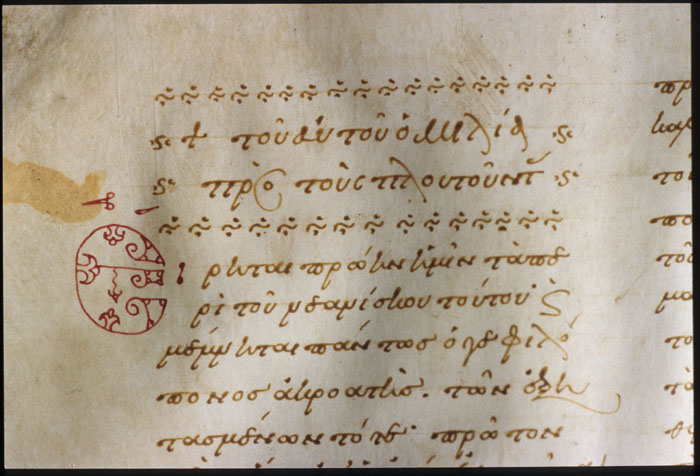 + τοῦ αὐτοῦ ὁμιλία
πρὸ τοὺς πλουτοῦντ
Εἴρηται πρώην ἡμῖν τὰ πε
ρὶ τοῦ νεανίσκου τούτου· ϗ
μέμνηται πάντως ὅ γε φιλό
πονος ἀκροατὴς. τῶν ἐξη
τασμένων τότε· πρῶτον